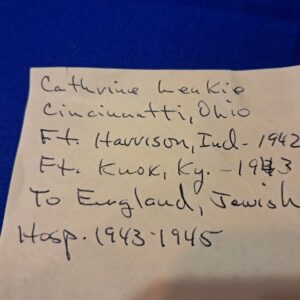 Cathrine Leukie
Cincinantti, Ohio
Ft. Harrison, Ind - 1942
Ft. Knox, Ky. - 1943
To England, Jewish
Hosp. 1943-1945